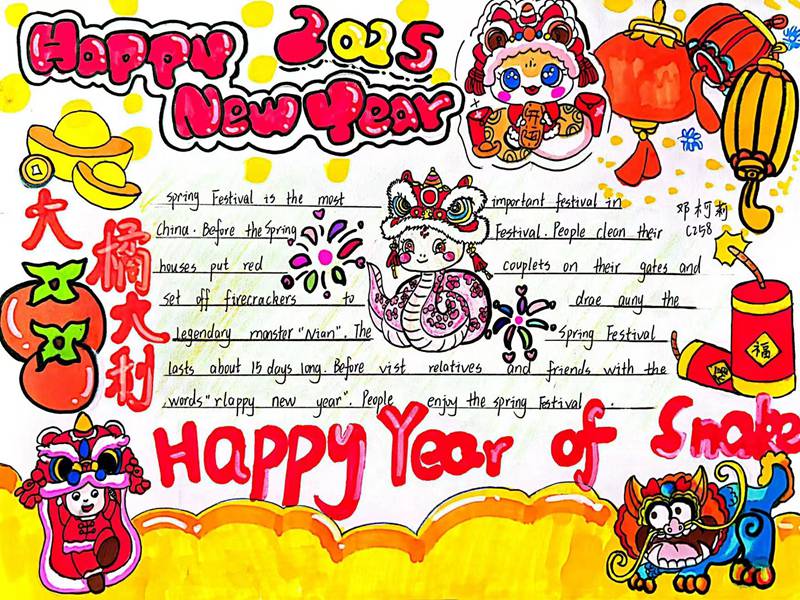 Happy 2025
New Year
大橘大利
邓柯莉
C258
spring Festival is the most important festival in
China. Before the Spring Festival. People clean their
houses put red couplets on their gates and
set off firecrackers to drae auny the
legendary monster "Nian". The Spring Festival
lasts about 15 days long. Before vist relatives and friends with the
words "rlappy new year". People enjoy the spring Festival.
福
Happy Year of Snake